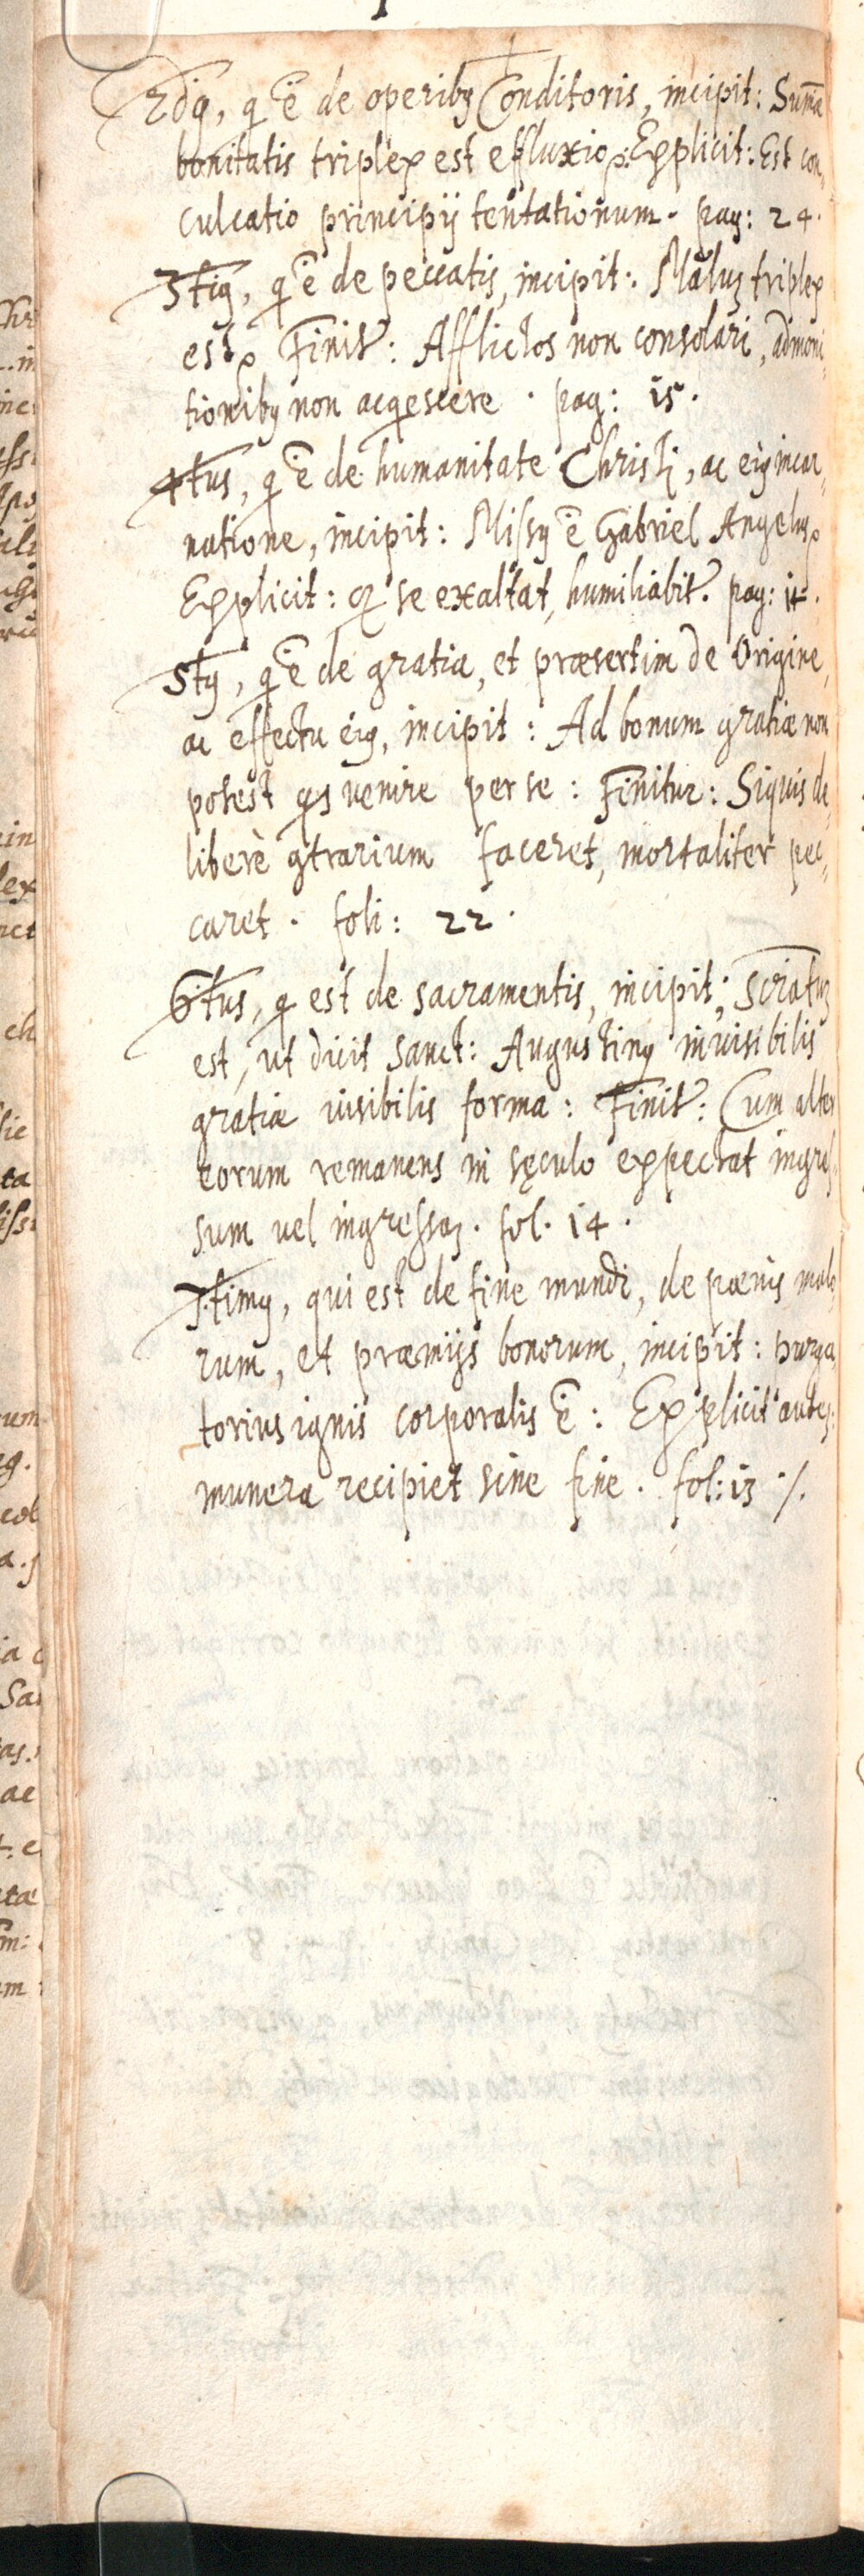 2dꝰ, q̄ ē de operibꝰ Conditoris, incipit: Sum̄a
bonitatis triplex est effluxio: Explicit: Est con,
culcatio principij tentationum. pag: 24.
3tiꝰ, q̄ ē de peccatis, incipit: Maluʒ triplex
est. Finit̄: Afflictos non consolari, admoni,
tionibꝰ non acq̄escere. pag: 15.
4tus, q̄ ē de humanitate Christi, ac eiꝰ incar,
natione, incipit: Missꝰ ē Gabriel Angelꝰ
Explicit: q̄ se exaltat, humiliabit̄. pag:
5tꝰ, q̄ ē de gratia, et præsertim de Origine,
ac effectu eiꝰ, incipit: Ad bonum gratiæ non
potest q̄s venire per se: Finitur: Siquis de,
liberè ꝯtrarium faceret, mortaliter pec,
caret. foli: 22.
6tus, q̄ est de sacramentis, incipit: Scr̄atuʒ
est, ut dicit Sanct: Augustinꝰ invisibilis
gratiæ visibilis forma: Finit̄: Cum alter
eorum remanens in sęculo expectat ingres,
sum vel ingressaʒ. fol. 14.
7timꝰ, qui est de fine mundi, de pœnis malo,
rum, et præmijs bonorum, incipit: purga,
torius ignis corporalis ē: Explicit auteʒ:
munera recipiet sine fine. fol: 13 ./.